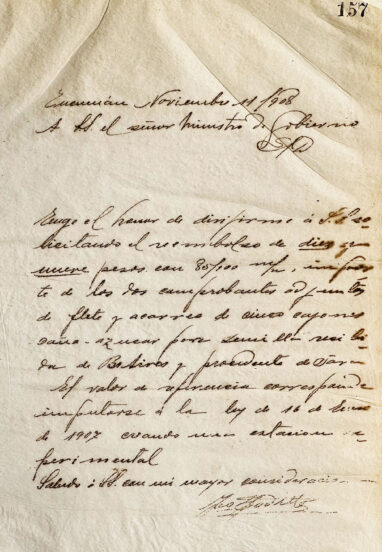 157
Tucumán Noviembre 11/908
A S.S. el señor Ministro de Gobierno
S/D
Tengo el honor de dirijirme á S.S. so
licitando el reembolso de diez y
nueve pesos con 80/100 m/n, impor
te de los dos comprobantes adjuntos
de flete y acarreo de cinco cajones
caña-azucar para semilla recibi
da de Bs Aires y procedente de
El valor de referencia corresponde
imputarse á la ley de 16 de Enero
de 1907 creando una estacion es
perimental
Saludo á S.S. con mi mayor consideracion